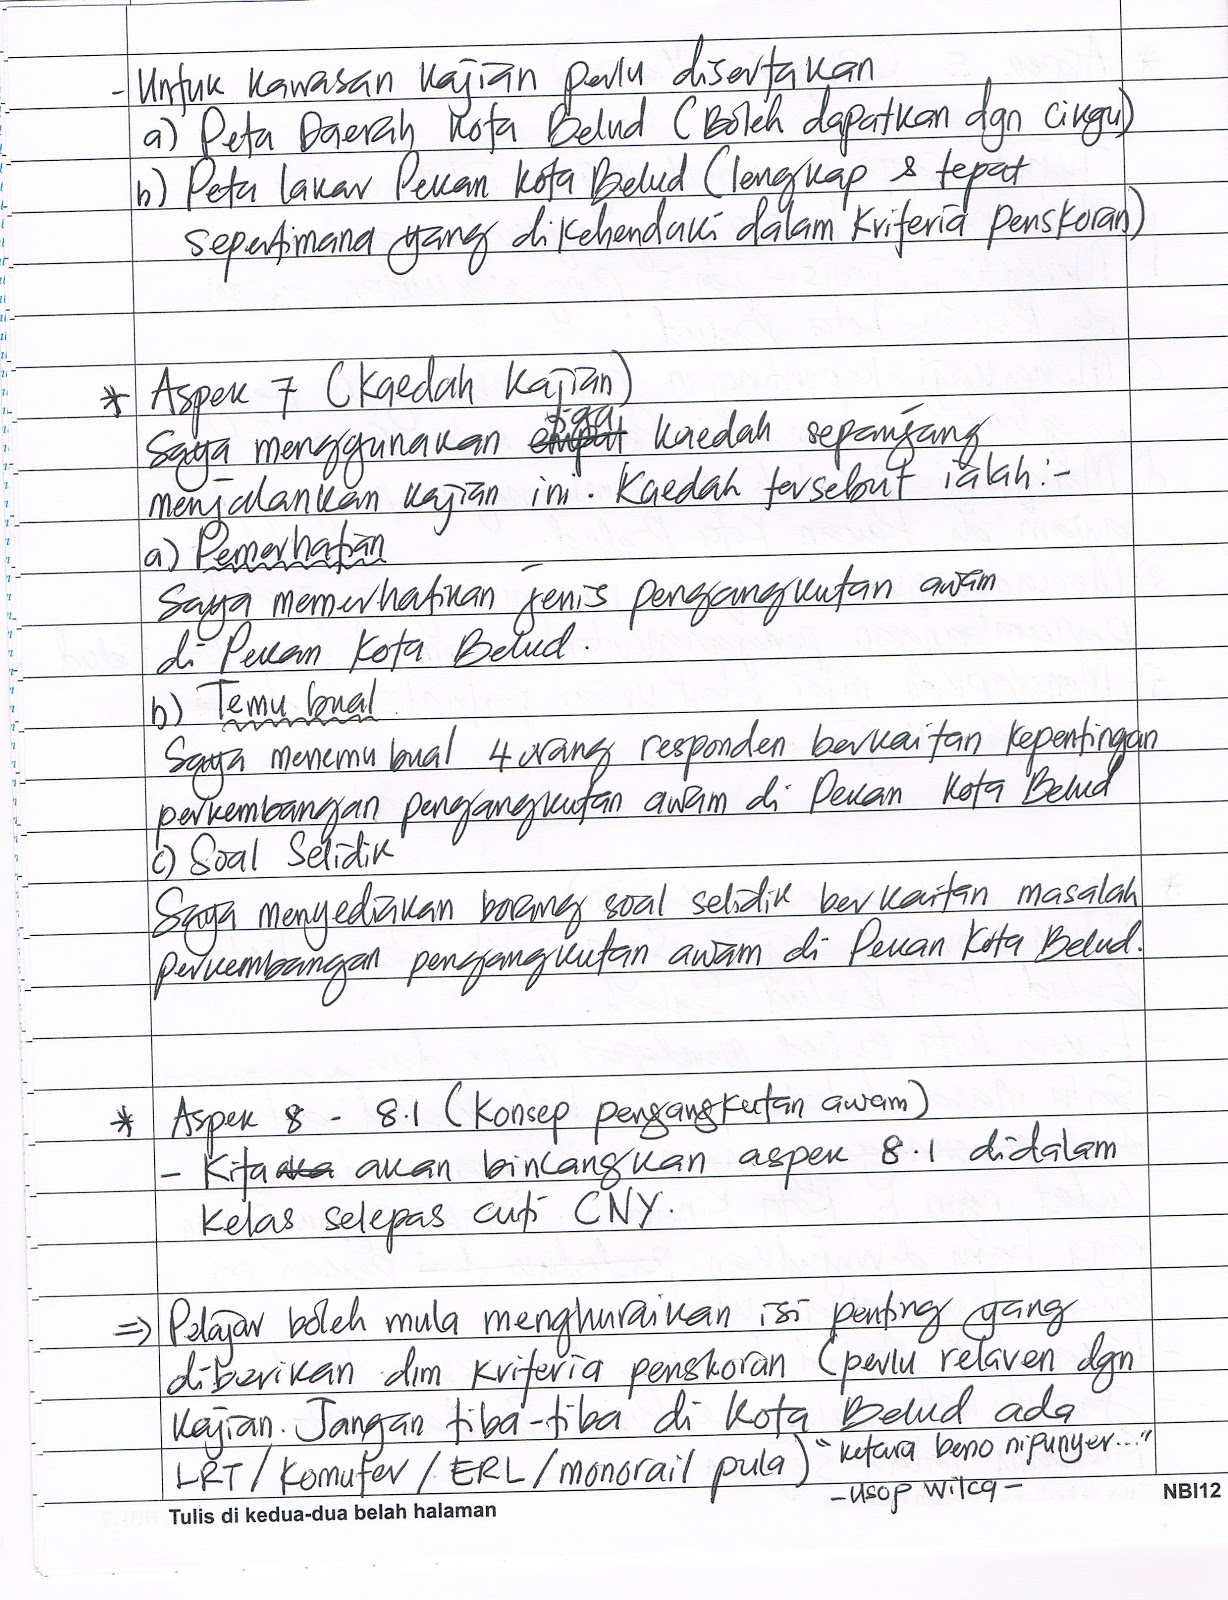 - Untuk kawasan kajian perlu disertakan
a) Peta Daerah Kota Belud (Boleh dapatkan dgn cikgu)
b) Peta lakar Pekan Kota Belud (lengkap & tepat
sepertimana yang dikehendaki dalam kriteria penskoran)
* Aspek 7 (Kaedah Kajian)
Saya menggunakan empat tiga kaedah sepanjang
menjalankan kajian ini. Kaedah tersebut ialah:-
a) Pemerhatian
Saya memerhatikan jenis pengangkutan awam
di Pekan Kota Belud.
b) Temu bual
Saya menemu bual 4 orang responden berkaitan kepentingan
perkembangan pengangkutan awam di Pekan Kota Belud
c) Soal Selidik
Saya menyediakan borang soal selidik berkaitan masalah
perkembangan pengangkutan awam di Pekan Kota Belud.
* Aspek 8 - 8.1 (Konsep pengangkutan awam)
- Kita aka akan bincangkan aspek 8.1 didalam
kelas selepas cuti CNY.
=> Pelajar boleh mula menghuraikan isi penting yang
diberikan dlm kriteria penskoran (perlu relaven dgn
kajian. Jangan tiba-tiba di Kota Belud ada
LRT/Komuter/ERL/monorail pula) "ketara beno nipunyer..."
-usop wilcq-
Tulis di kedua-dua belah halaman
NBI12